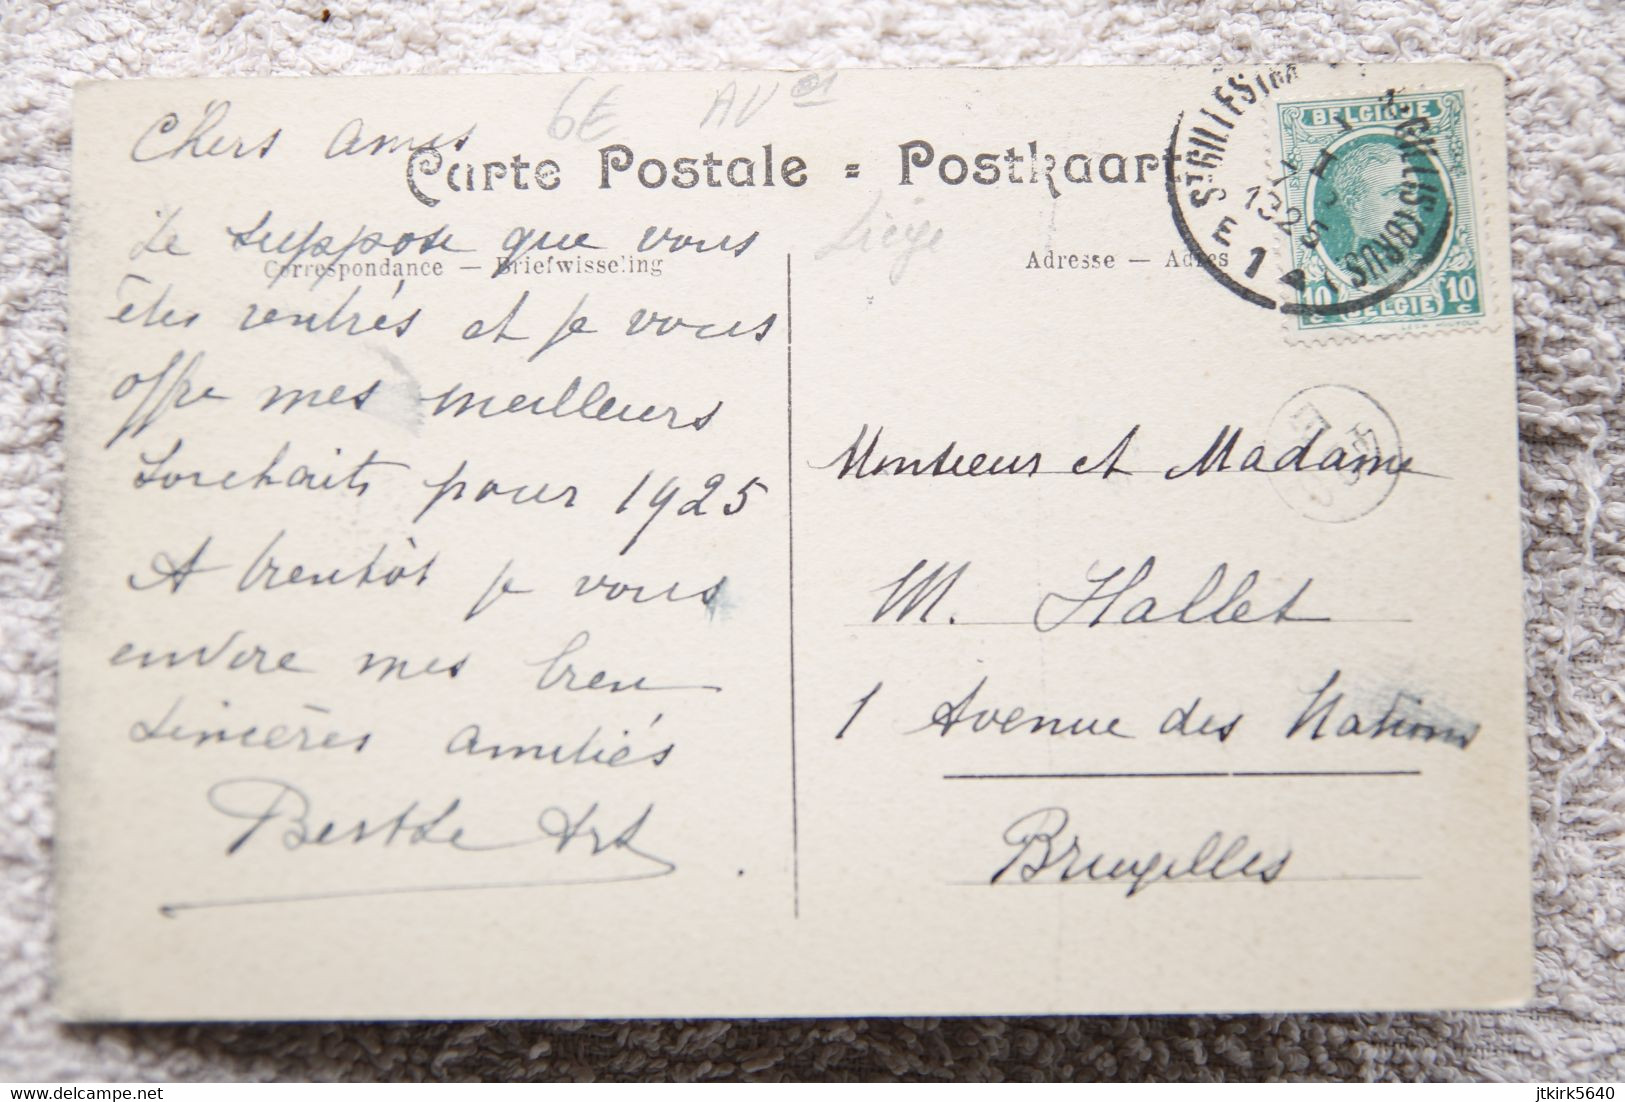 Chers amis
6€
Carte Postale = Postkaart
Liège
Correspondance — Briefwisseling
Adresse — Adres
Je suppose que vous
êtes rentrés et je vous
offre mes meilleurs
souhaits pour 1925
A bientôt je vous
envoie mes bien
sincères amitiés
Berthe Art
BELGIQUE
10 c (BELGIË) 10 c
ST GILLES
1
Monsieur et Madame
M. Hallet
1 Avenue des Nations
Bruxelles
delcampe.net
jtkirk5640